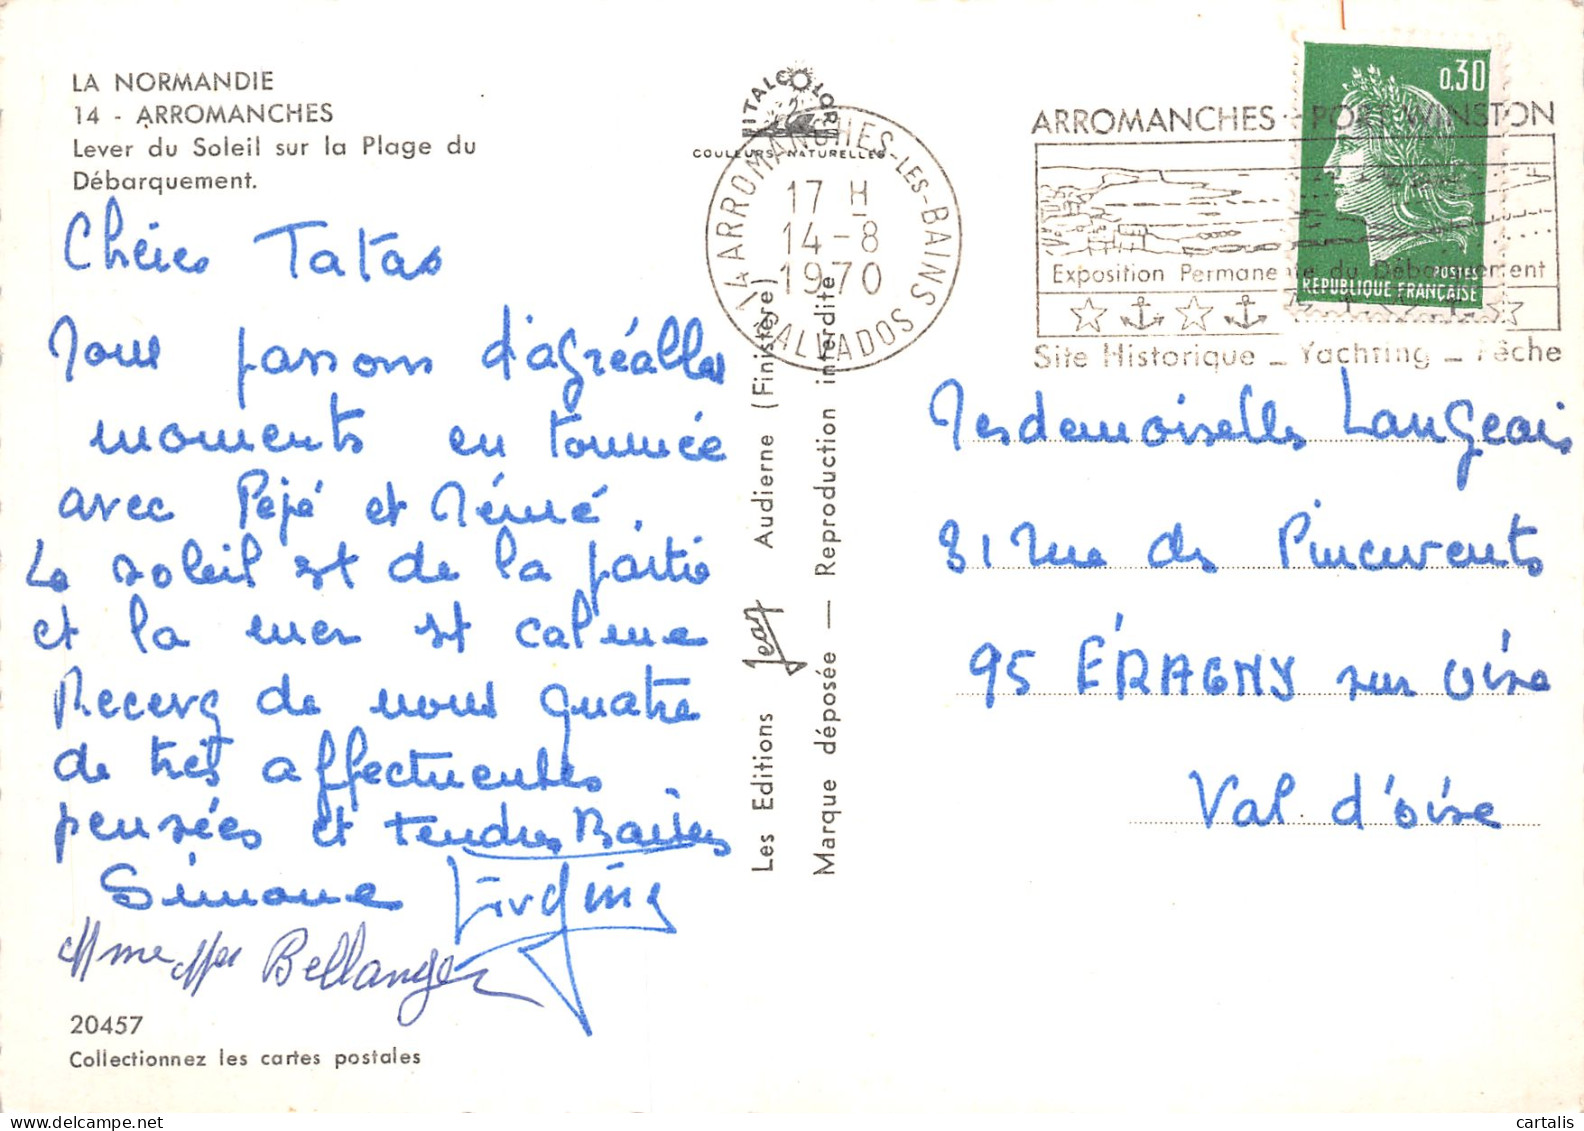 LA NORMANDIE
14 - ARROMANCHES
Lever du Soleil sur la Plage du
Débarquement.
Chéries Tatas
Nous passons d'agréables
moments en tournée
avec Pépé et Mémé.
Le soleil est de la partie
et la mer est calme
Recevez de nous quatre
de très affectueuses
pensées et tendres Baisers
Simone
Mme Mr Bellanger
20457
Collectionnez les cartes postales
ITALCOLOR
COULEURS NATURELLES
14 ARROMANCHES-LES-BAINS
17 H
14-8
1970
CALVADOS
Les Editions Jean Audierne (Finistère)
Marque déposée — Reproduction interdite
ARROMANCHES - PORT WINSTON
Exposition Permanente du Débarquement
Site Historique - Yachting - Pêche
0,30
POSTES
REPUBLIQUE FRANÇAISE
Mesdemoiselles Langeais
31 rue des Pincevents
95 ÉRAGNY sur Oise
Val d'Oise
cartalis
delcampe.net